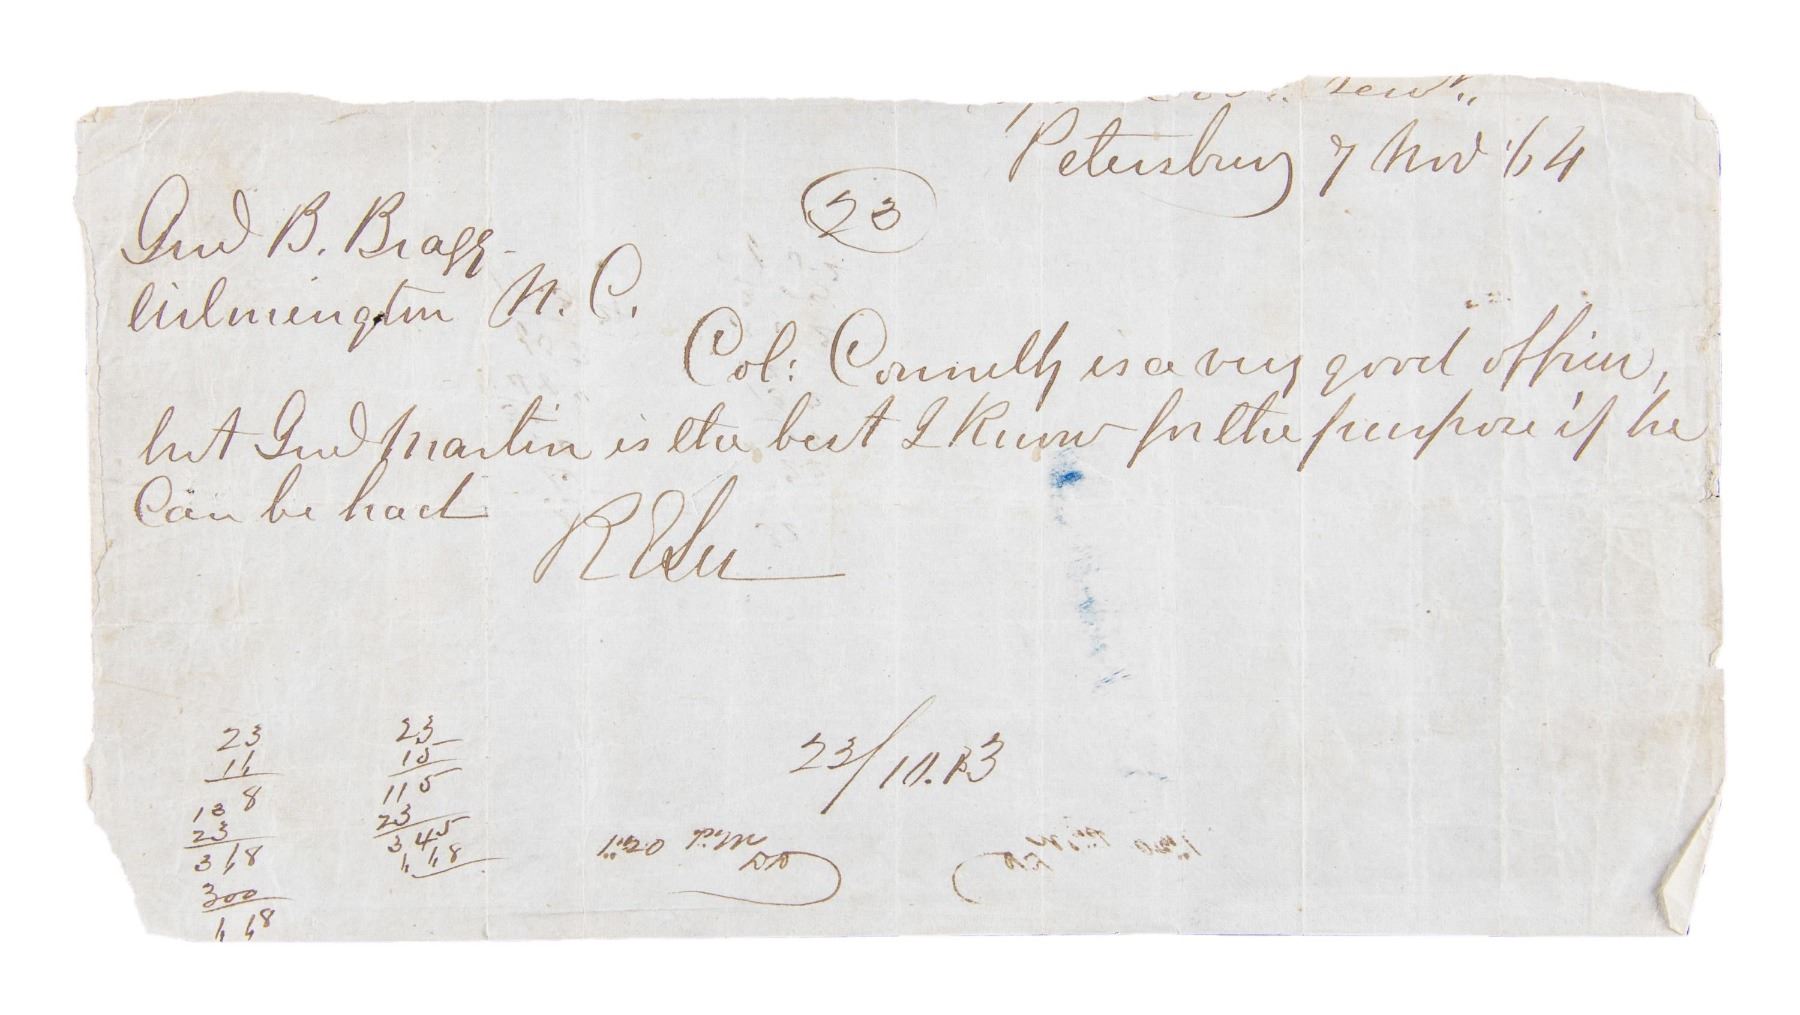 Petersburg 7 Nov '64
23
Genl B. Bragg
Wilmington N. C.
Col: Connelly is a very good officer,
but Genl Martin is the best I know for the purpose if he
Can be had
R E Lee
23
11
23
15
115
23
345
23
318
300
118
118
23/10.